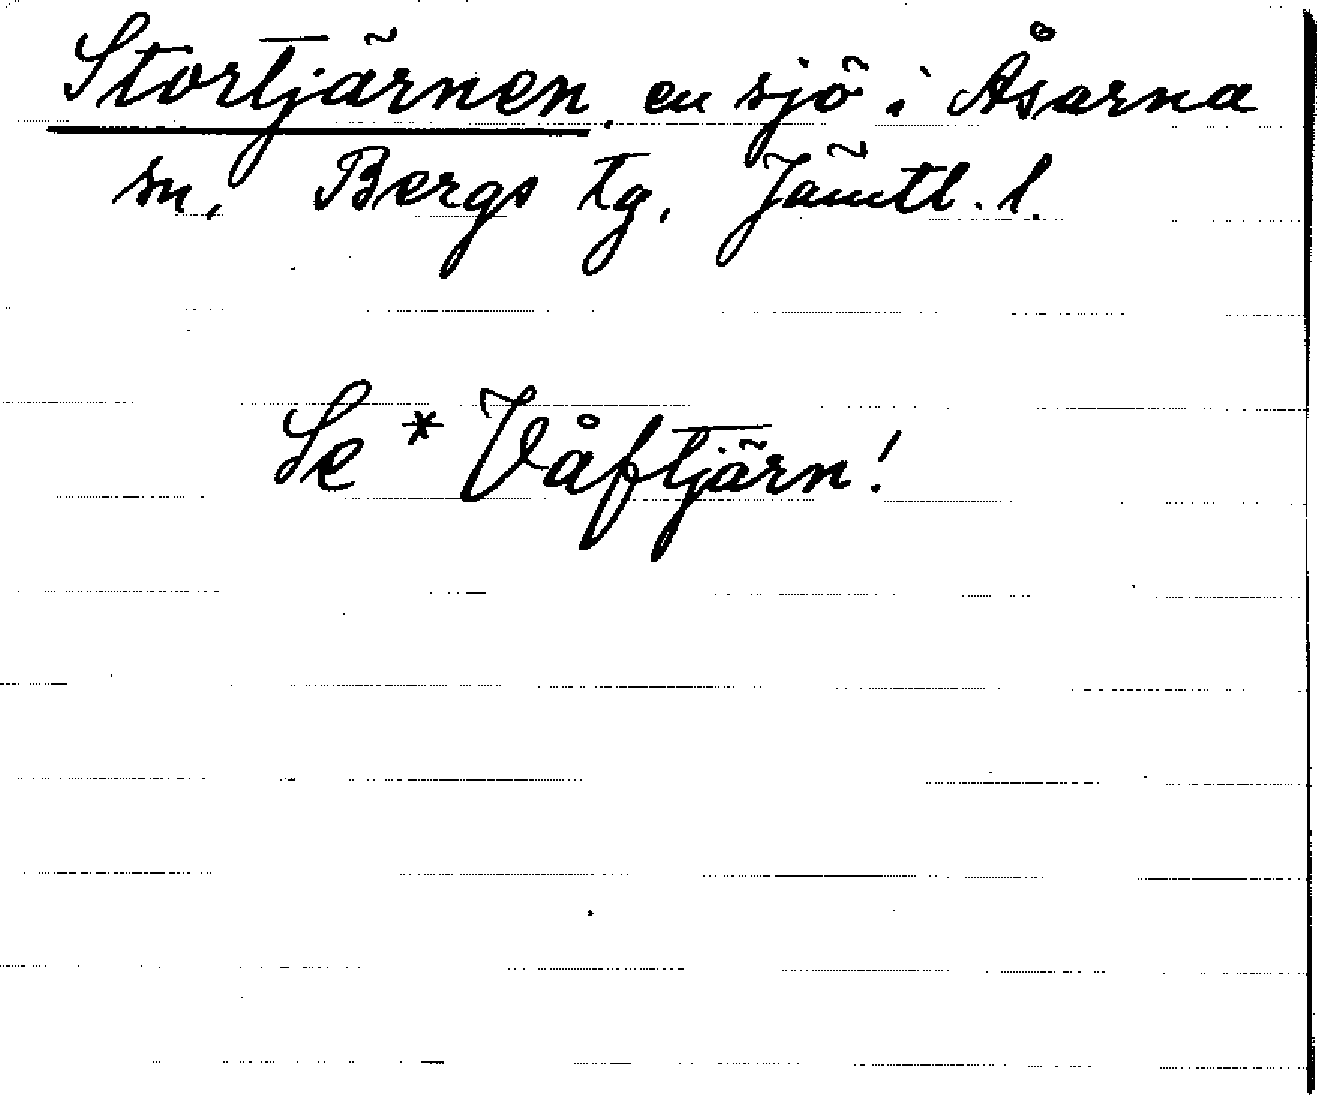 Stortjärnen, en sjö i Åsarna
sn, Bergs tg, Jämtl. l.
Se * Våftjärn!